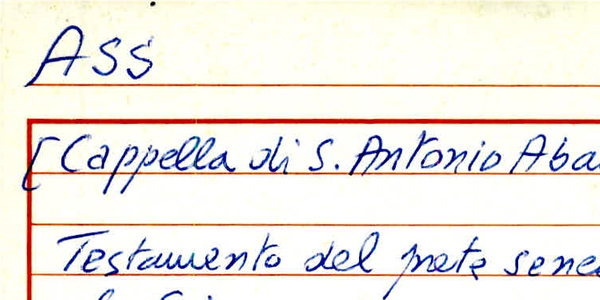 ASS
[Cappella di S. Antonio Aba
Testamento del prete sene